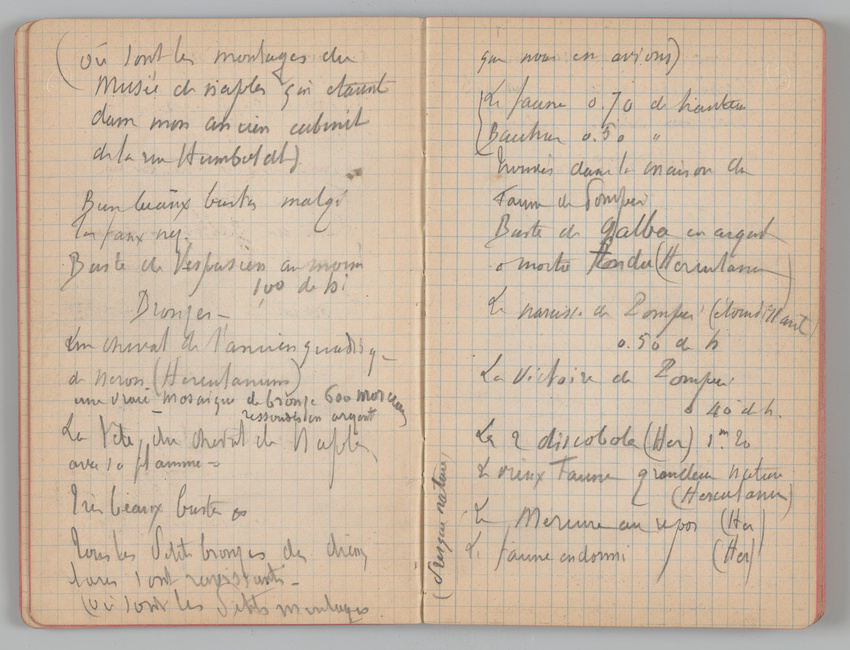 (où sont les montages du
Musée de Naples qui étaient
dans mon ancien cabinet
de la rue Humboldt)
Bien beaux bustes malgré
les faux nez.
Buste de Vespasien au moins
1,00 de h.
Bronzes -
Un cheval de l'ancien quadrige
de Neron (Herculanum)
une vraie mosaïque de bronze 600 morceaux
ressoudés en argent
La Tête du cheval de Naples
avec sa flamme =
Très beaux bustes
Tous les Petits bronzes des
sont ravissants -
(où sont les Petits montages
que nous en avions)
Le faune 0.70 de hauteur
Bacchus 0.50 "
trouvés dans la maison du
Faune de Pompei
Buste de Galba en argent
(Herculanum)
Le narcisse de Pompei (étourdissant)
0.50 de h
La Victoire de Pompei
0 40 de h.
Les 2 discobole (Her) 1m.20
Le vieux Faune grandeur nature
(Herculanum)
Le Mercure au repos (Her)
Le faune endormi (Her)
(presque nature)